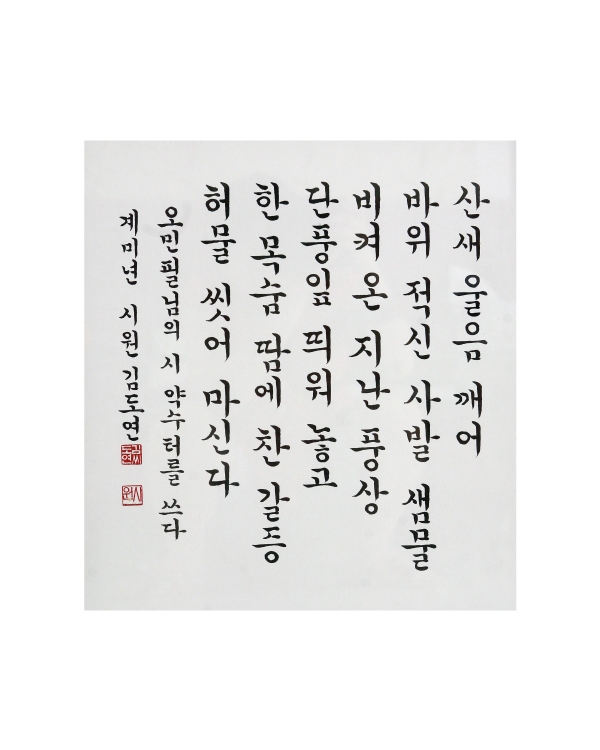 산새 울음 깨어
바위 적신 사발 샘물
비켜 온 지난 풍상
단풍잎 띄워 놓고
한 목숨 땀에 찬 갈등
허물 씻어 마신다
오민필님의 시 약수터를 쓰다
계미년 시원 김도연